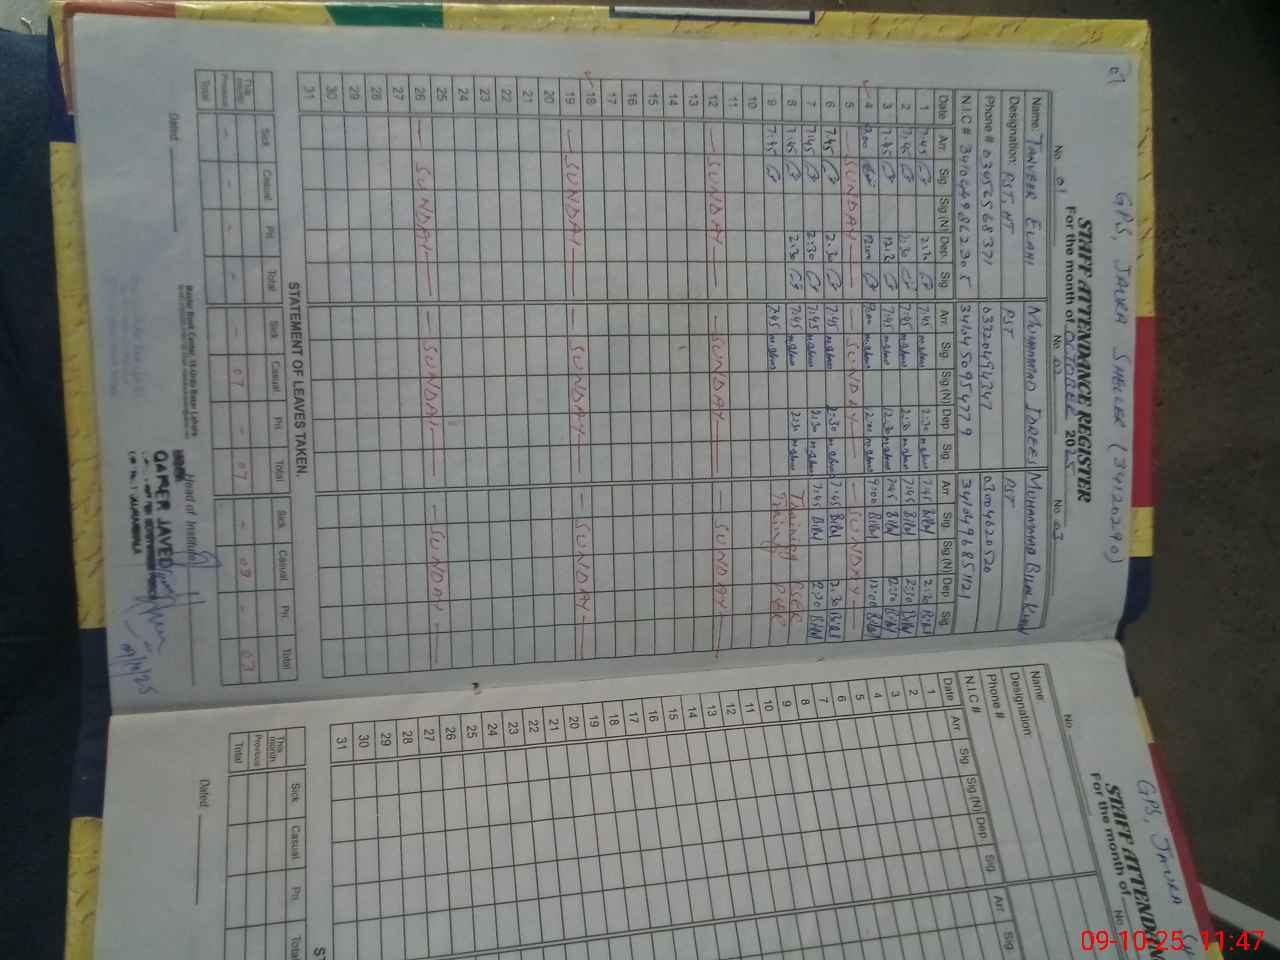 07
GPS, JAURA SHELLER (34120290)
STAFF ATTENDANCE REGISTER
For the month of OCTOBER 2025
No 01 No 02 No 03
Name: TANVEER ELAHI MUHAMMAD IDREES MUHAMMAD BILAL KHAN
Designation: PST, HT PST PST
Phone # 03456568371 03320494347 03004620520
N.I.C # 3410449862305 3410450954779 34104496851121
Date Arr. Sig. Sig.(N) Dep. Sig. Arr Sig. Sig.(N) Dep Sig. Arr Sig. Sig.(N) Dep Sig.
1 7:45 2:30 7:45 2:30 7:45 Bilal 2:30 Bilal
2 7:45 2:30 7:45 2:30 7:45 Bilal 2:30 Bilal
3 7:45 12:30 7:45 12:30 7:45 Bilal 12:30 Bilal
4 9:00 12:00 9:00 12:00 9:00 Bilal 12:00 Bilal
5 — SUNDAY — — SUNDAY — — SUNDAY —
6 7:45 2:30 7:45 2:30 7:45 Bilal 2:30 Bilal
7 7:45 2:30 7:45 2:30 7:45 Bilal 2:30 Bilal
8 7:45 2:30 7:45 2:30 Training
9 7:45 7:45 Training
10
11
12 — SUNDAY — — SUNDAY — — SUNDAY —
13
14
15
16
17
18
19 — SUNDAY — — SUNDAY — — SUNDAY —
20
21
22
23
24
25
26 — SUNDAY — — SUNDAY — — SUNDAY —
27
28
29
30
31
STATEMENT OF LEAVES TAKEN.
Sick Casual Pri. Total Sick Casual Pri. Total Sick Casual Pri. Total
This month
Previous - - - - - 07 - 07 - 03 - 03
Total
Dated
Head of Institution
QAMER JAVED
09/10/25
GPS, JAURA
STAFF ATTENDAN
For the month of
No No
Name:
Designation:
Phone #
N.I.C #
Date Arr Sig. Sig.(N) Dep. Sig. Arr Sig.
1
2
3
4
5
6
7
8
9
10
11
12
13
14
15
16
17
18
19
20
21
22
23
24
25
26
27
28
29
30
31
ST
Sick Casual. Pri. Total
This month
Previous
Total
Dated
09-10-25 11:47